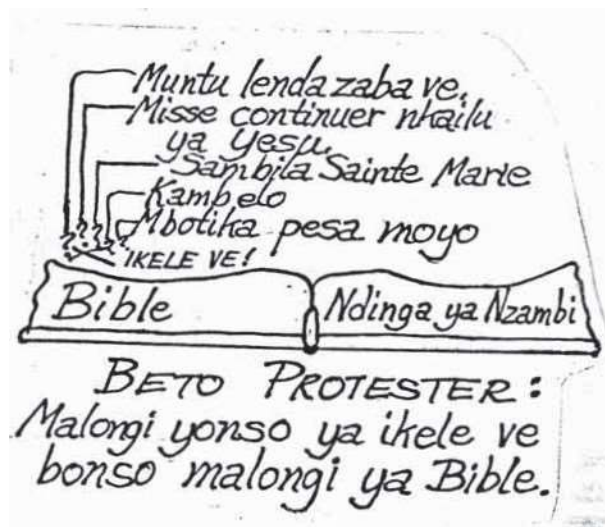 Muntu lenda zaba ve,
Misse continuer nkailu
ya Yesu,
Sambila Sainte Marie
Kambelo
Mbotika pesa moyo
? ? ? ? ?
IKELE VE!
Bible
Ndinga ya Nzambi
BETO PROTESTER:
Malongi yonso ya ikele ve
bonso malongi ya Bible.